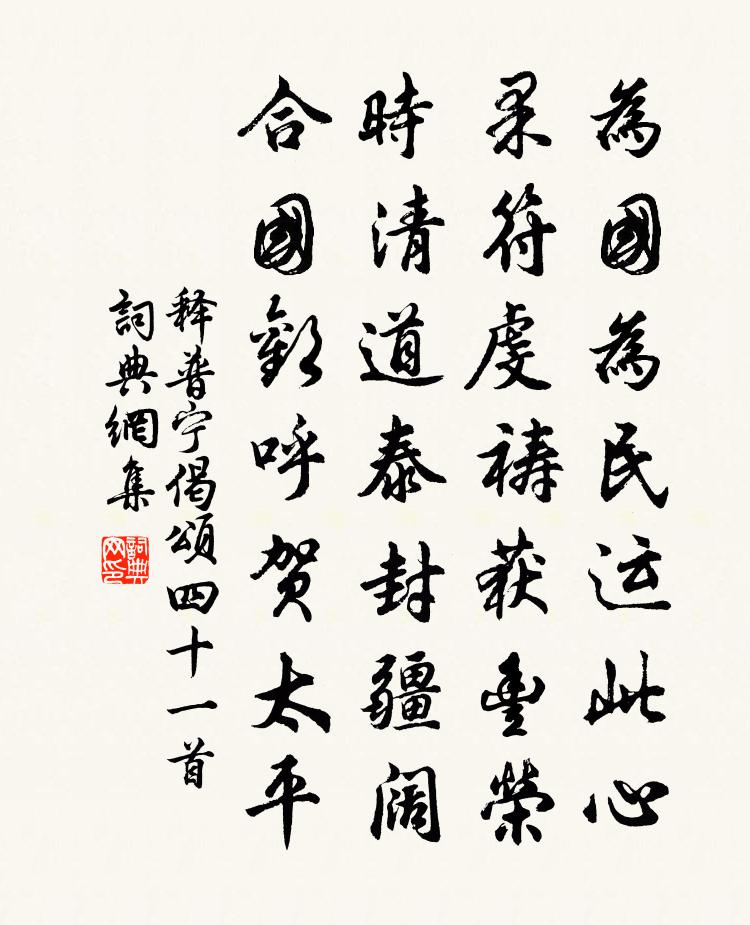 為國為民运此心
果符虔禱获豐榮
時清道泰封疆阔
合國歡呼贺太平
释普宁偈頌四十一首
詞典網集
詞典網印